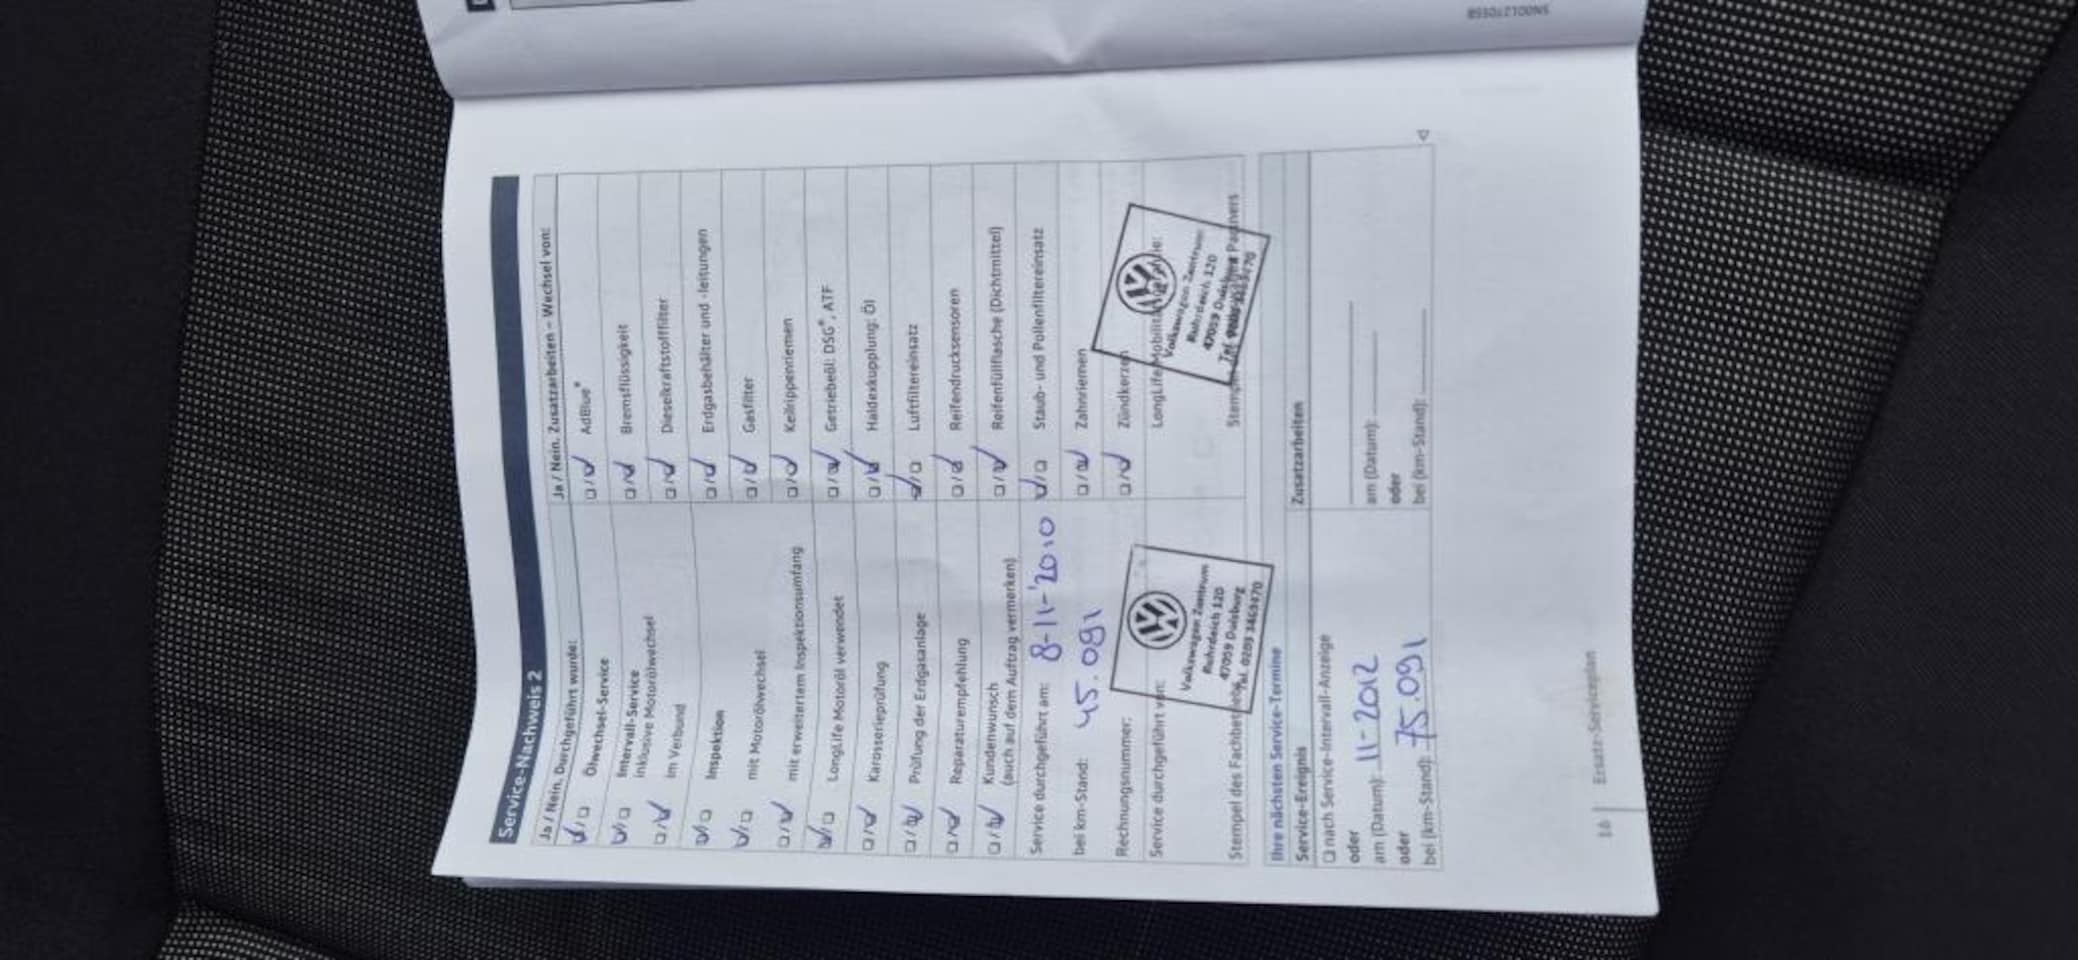 SN001270SSB
Service-Nachweis 2
Ja / Nein. Durchgeführt wurde:
Ölwechsel-Service
Intervall-Service
inklusive Motorölwechsel
im Verbund
Inspektion
mit Motorölwechsel
mit erweitertem Inspektionsumfang
LongLife Motoröl verwendet
Karosserieprüfung
Prüfung der Erdgasanlage
Reparaturempfehlung
Kundenwunsch
(auch auf dem Auftrag vermerken)
Service durchgeführt am: 8-11-'2010
bei km-Stand: 45.091
Rechnungsnummer:
Service durchgeführt von:
Volkswagen Zentrum
Ruhrdeich 120
47059 Duisburg
Stempel des
Ja / Nein. Zusatzarbeiten – Wechsel von:
AdBlue®
Bremsflüssigkeit
Dieselkraftstofffilter
Erdgasbehälter und -leitungen
Gasfilter
Keilrippenriemen
Getriebeöl: DSG®, ATF
Haldexkupplung: Öl
Luftfiltereinsatz
Reifendrucksensoren
Reifenfüllflasche (Dichtmittel)
Staub- und Pollenfiltereinsatz
Zahnriemen
Zündkerzen
Volkswagen Zentrum
Ruhrdeich 120
47059 Duisburg
Ihre nächsten Service-Termine
Service-Ereignis
nach Service-Intervall-Anzeige
oder
am (Datum): 11-2012
oder
bei (km-Stand): 75.091
Zusatzarbeiten
am (Datum):
oder
bei (km-Stand):
16 Ersatz-Serviceplan